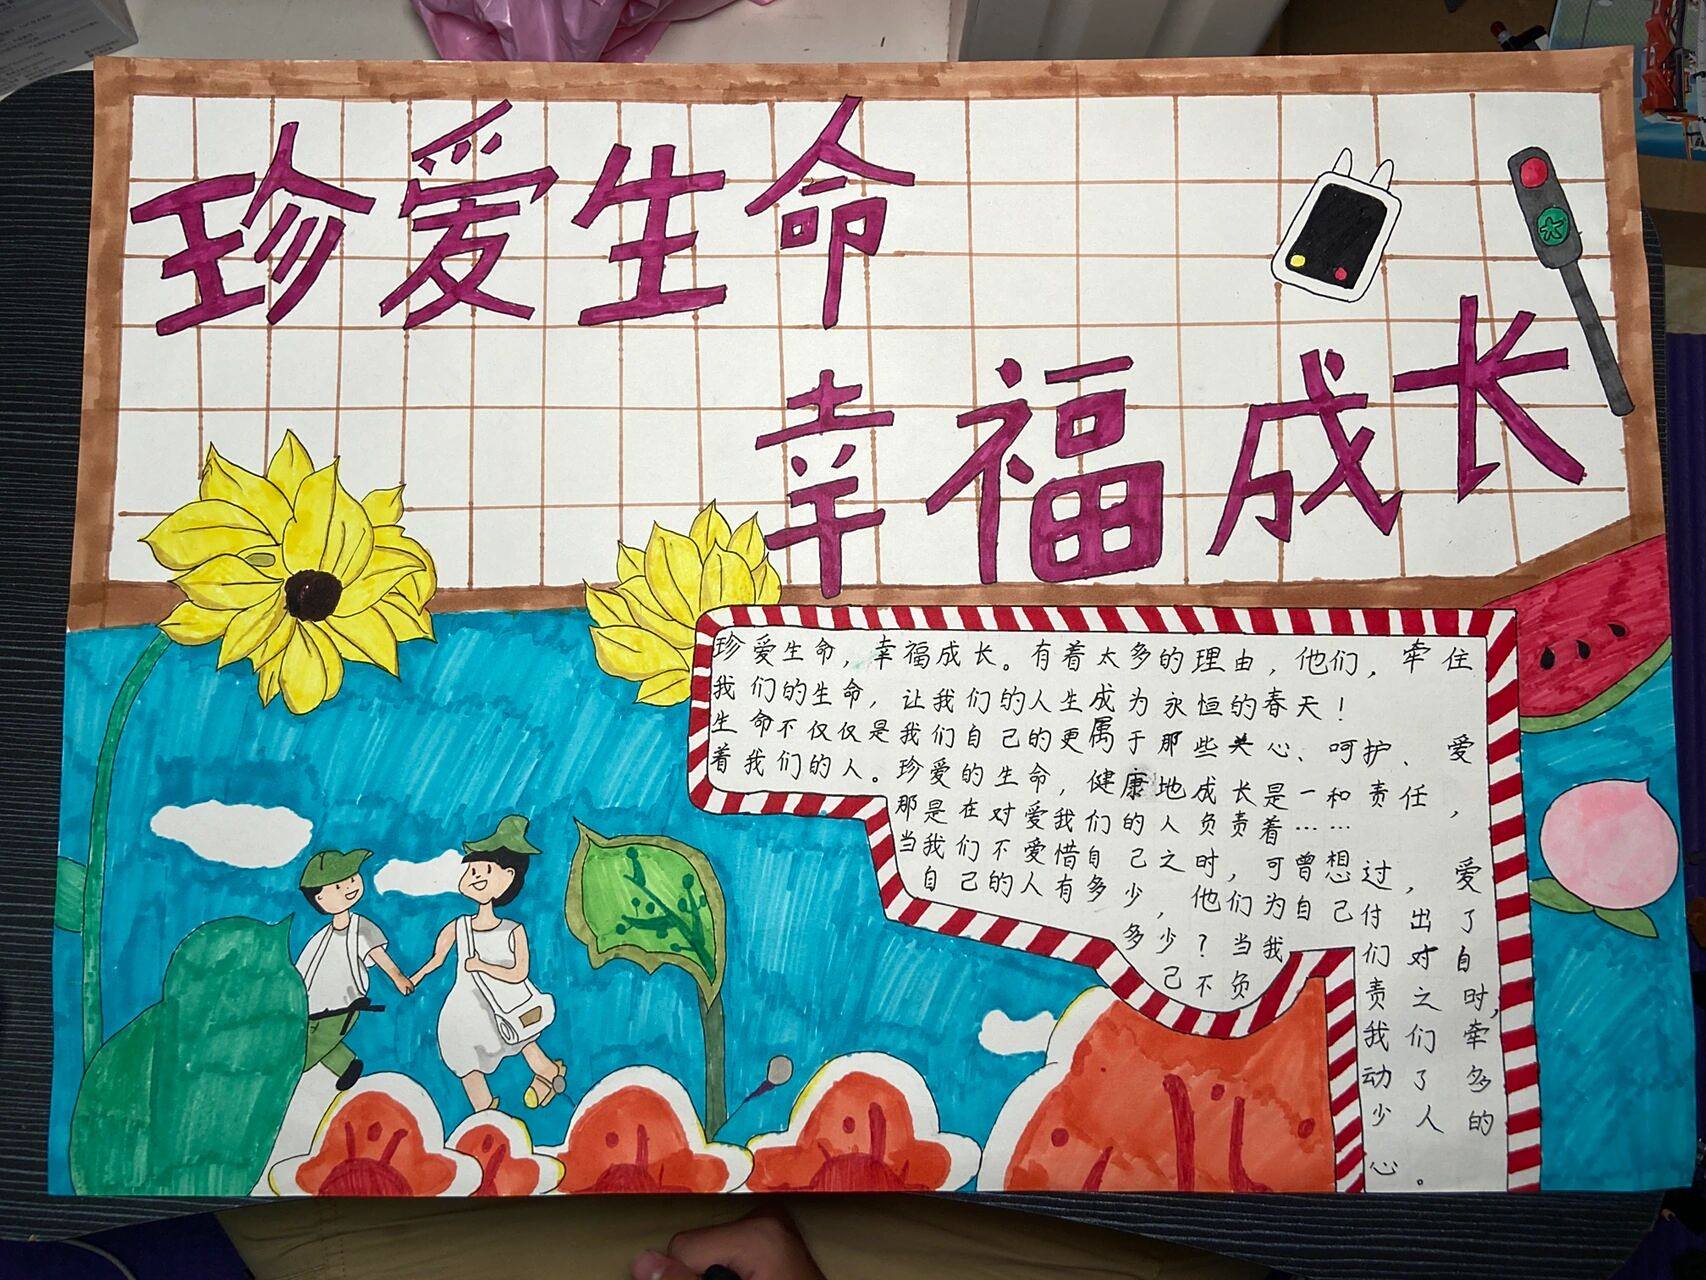 珍爱生命
幸福成长
珍爱生命，幸福成长。有着太多的理由，他们，牵住
我们的生命，让我们的人生成为永恒的春天！
生命不仅仅是我们自己的更属于那些关心、呵护、爱
着我们的人。珍爱的生命，健康地成长是一和责任，
那是在对爱我们的人负责着……
当我们不爱惜自己之时，可曾想过，爱
自己的人有多少，他们为自己付出了
多少？当我们对自
己不负责之时，
我们牵
动了多
少人的
心。